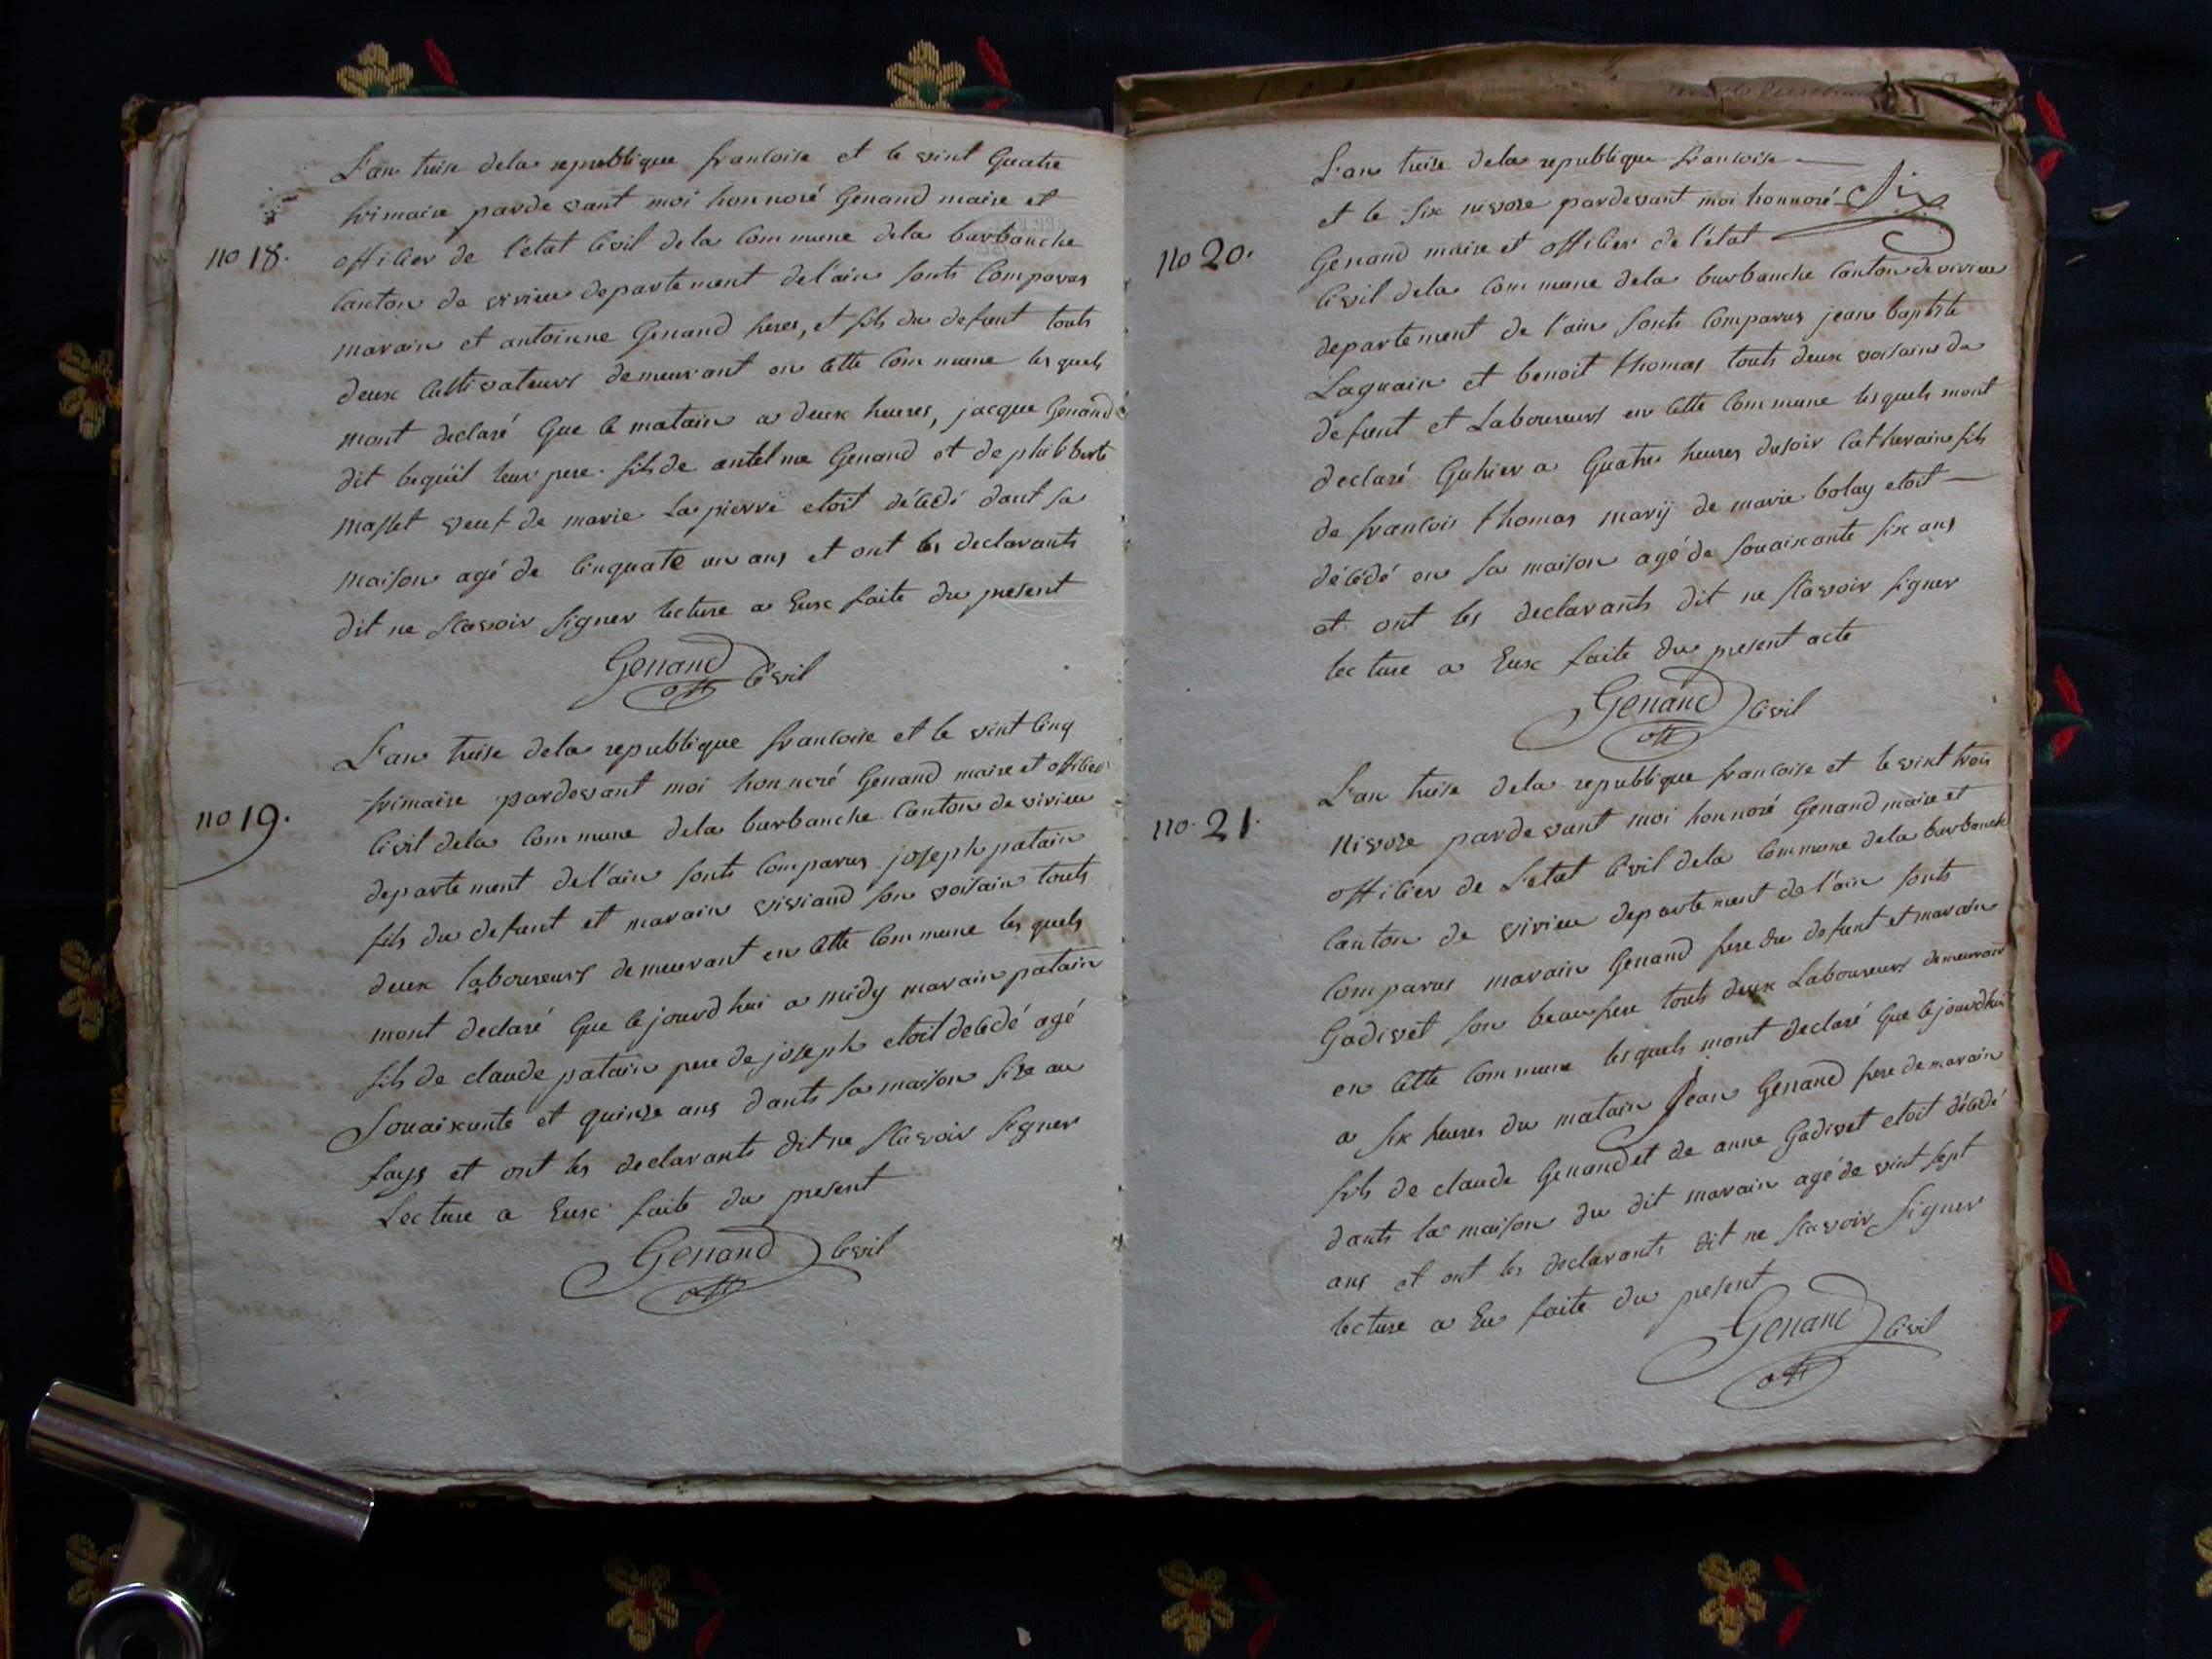 L'an treise dela republique francoise et le vint Quatre
frimaire pardevant moi honnoré Genand maire et
no 18.
officier de l'état Civil dela Commune dela burbanche
Canton de virieu departement de l'ain sonts Comparus
marain et antoinne Genand freres, et fils du defunt touts
deux Cultivateurs demeurant en Cette Commune lesquels
mont declaré Que le matain a deux heures, jacque Genand
dit leur pere fils de antelme Genand et de philiberte
masset veuf de marie Lapierre etoit décédé dant sa
maison agé de Cinquate un ans et ont les declarants
dit ne scavoir signer lecture a Eux faite du present
Genand off Civil
L'an treise dela republique francoise et le vint Cinq
frimaire pardevant moi honnoré Genand maire et officier
no 19.
Civil dela Commune dela burbanche Canton de virieu
departement de l'ain sonts Comparus joseph patain
fils du defunt et marain viviand son voisain touts
deux laboureurs demeurant en Cette Commune lesquels
mont declaré Que le jourdhui a midy marain patain
fils de claude patain pere de joseph etoit decedé agé
Souaixante et quinze ans dants sa maison size au
fays et ont les declarants dit ne scavoir signer
Lecture a Eux faite du present
Genand off Civil
L'an treise dela republique francoise
et le six nivose pardevant moi honnoré
Six
no 20.
Genand maire et officier de l'état
Civil dela Commune dela burbanche Canton de virieu
departement de l'ain sonts Comparus jean baptiste
Laguain et benoit thomas touts deux voisains du
defunt et Laboureurs en Cette Commune lesquels mont
declaré Quhier a Quatre heures dusoir Catherain fils
de francois thomas marij de marie bolay etoit
décédé en sa maison agé de souaixante six ans
et ont les declarants dit ne scavoir signer
lecture a Eux faite du present acte
Genand off Civil
L'an treise dela republique francoise et le vint trois
no. 21.
Nivose pardevant moi honnoré Genand maire et
officier de L'etat Civil dela Commune dela burbanche
Canton de virieu departement de l'ain sonts
Comparus marain Genand frere du defunt et marain
Gadivet son beaufrere touts deux Laboureurs demeurant
en Cette Commune lesquels mont declaré Que le jourdhui
a six heures du matain Jean Genand frere de marain
fils de claude Genand et de anne Gadivet etoit décédé
dants la maison du dit marain agé de vint sept
ans et ont les declarants dit ne scavoir signer
lecture a Eu faite du present
Genand off Civil